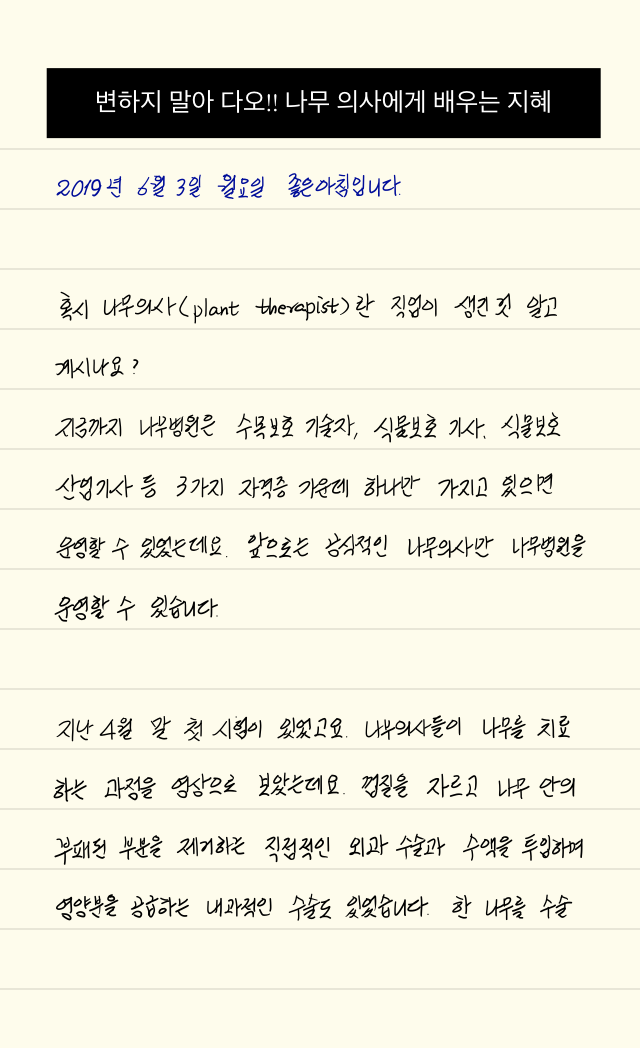 변하지 말아 다오!! 나무 의사에게 배우는 지혜
2019년 6월 3일 월요일 좋은아침입니다.
혹시 나무의사(plant therapist)란 직업이 생긴것 알고
계시나요?
지금까지 나무병원은 수목보호 기술자, 식물보호 기사, 식물보호
산업기사 등 3가지 자격증 가운데 하나만 가지고 있으면
운영할 수 있었는데요. 앞으로는 공식적인 나무의사만 나무병원을
운영할 수 있습니다.
지난 4월 말 첫 시험이 있었고요. 나무의사들이 나무를 치료
하는 과정을 영상으로 보았는데요. 껍질을 자르고 나무 안의
부패된 부분을 제거하는 직접적인 외과 수술과 수액을 투입하며
영양분을 공급하는 내과적인 수술도 있었습니다. 한 나무를 수술